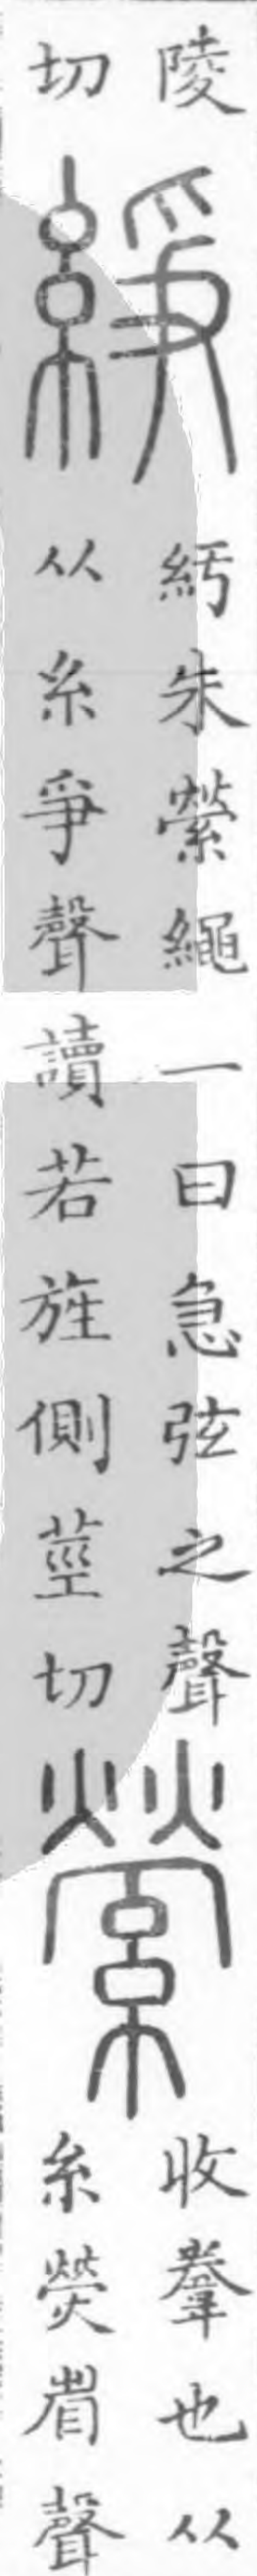 陵
切
䋫
紆朱縈繩一曰急弦之聲
从糸爭聲讀若旌側莖切
縈
收韏也从
糸熒省聲